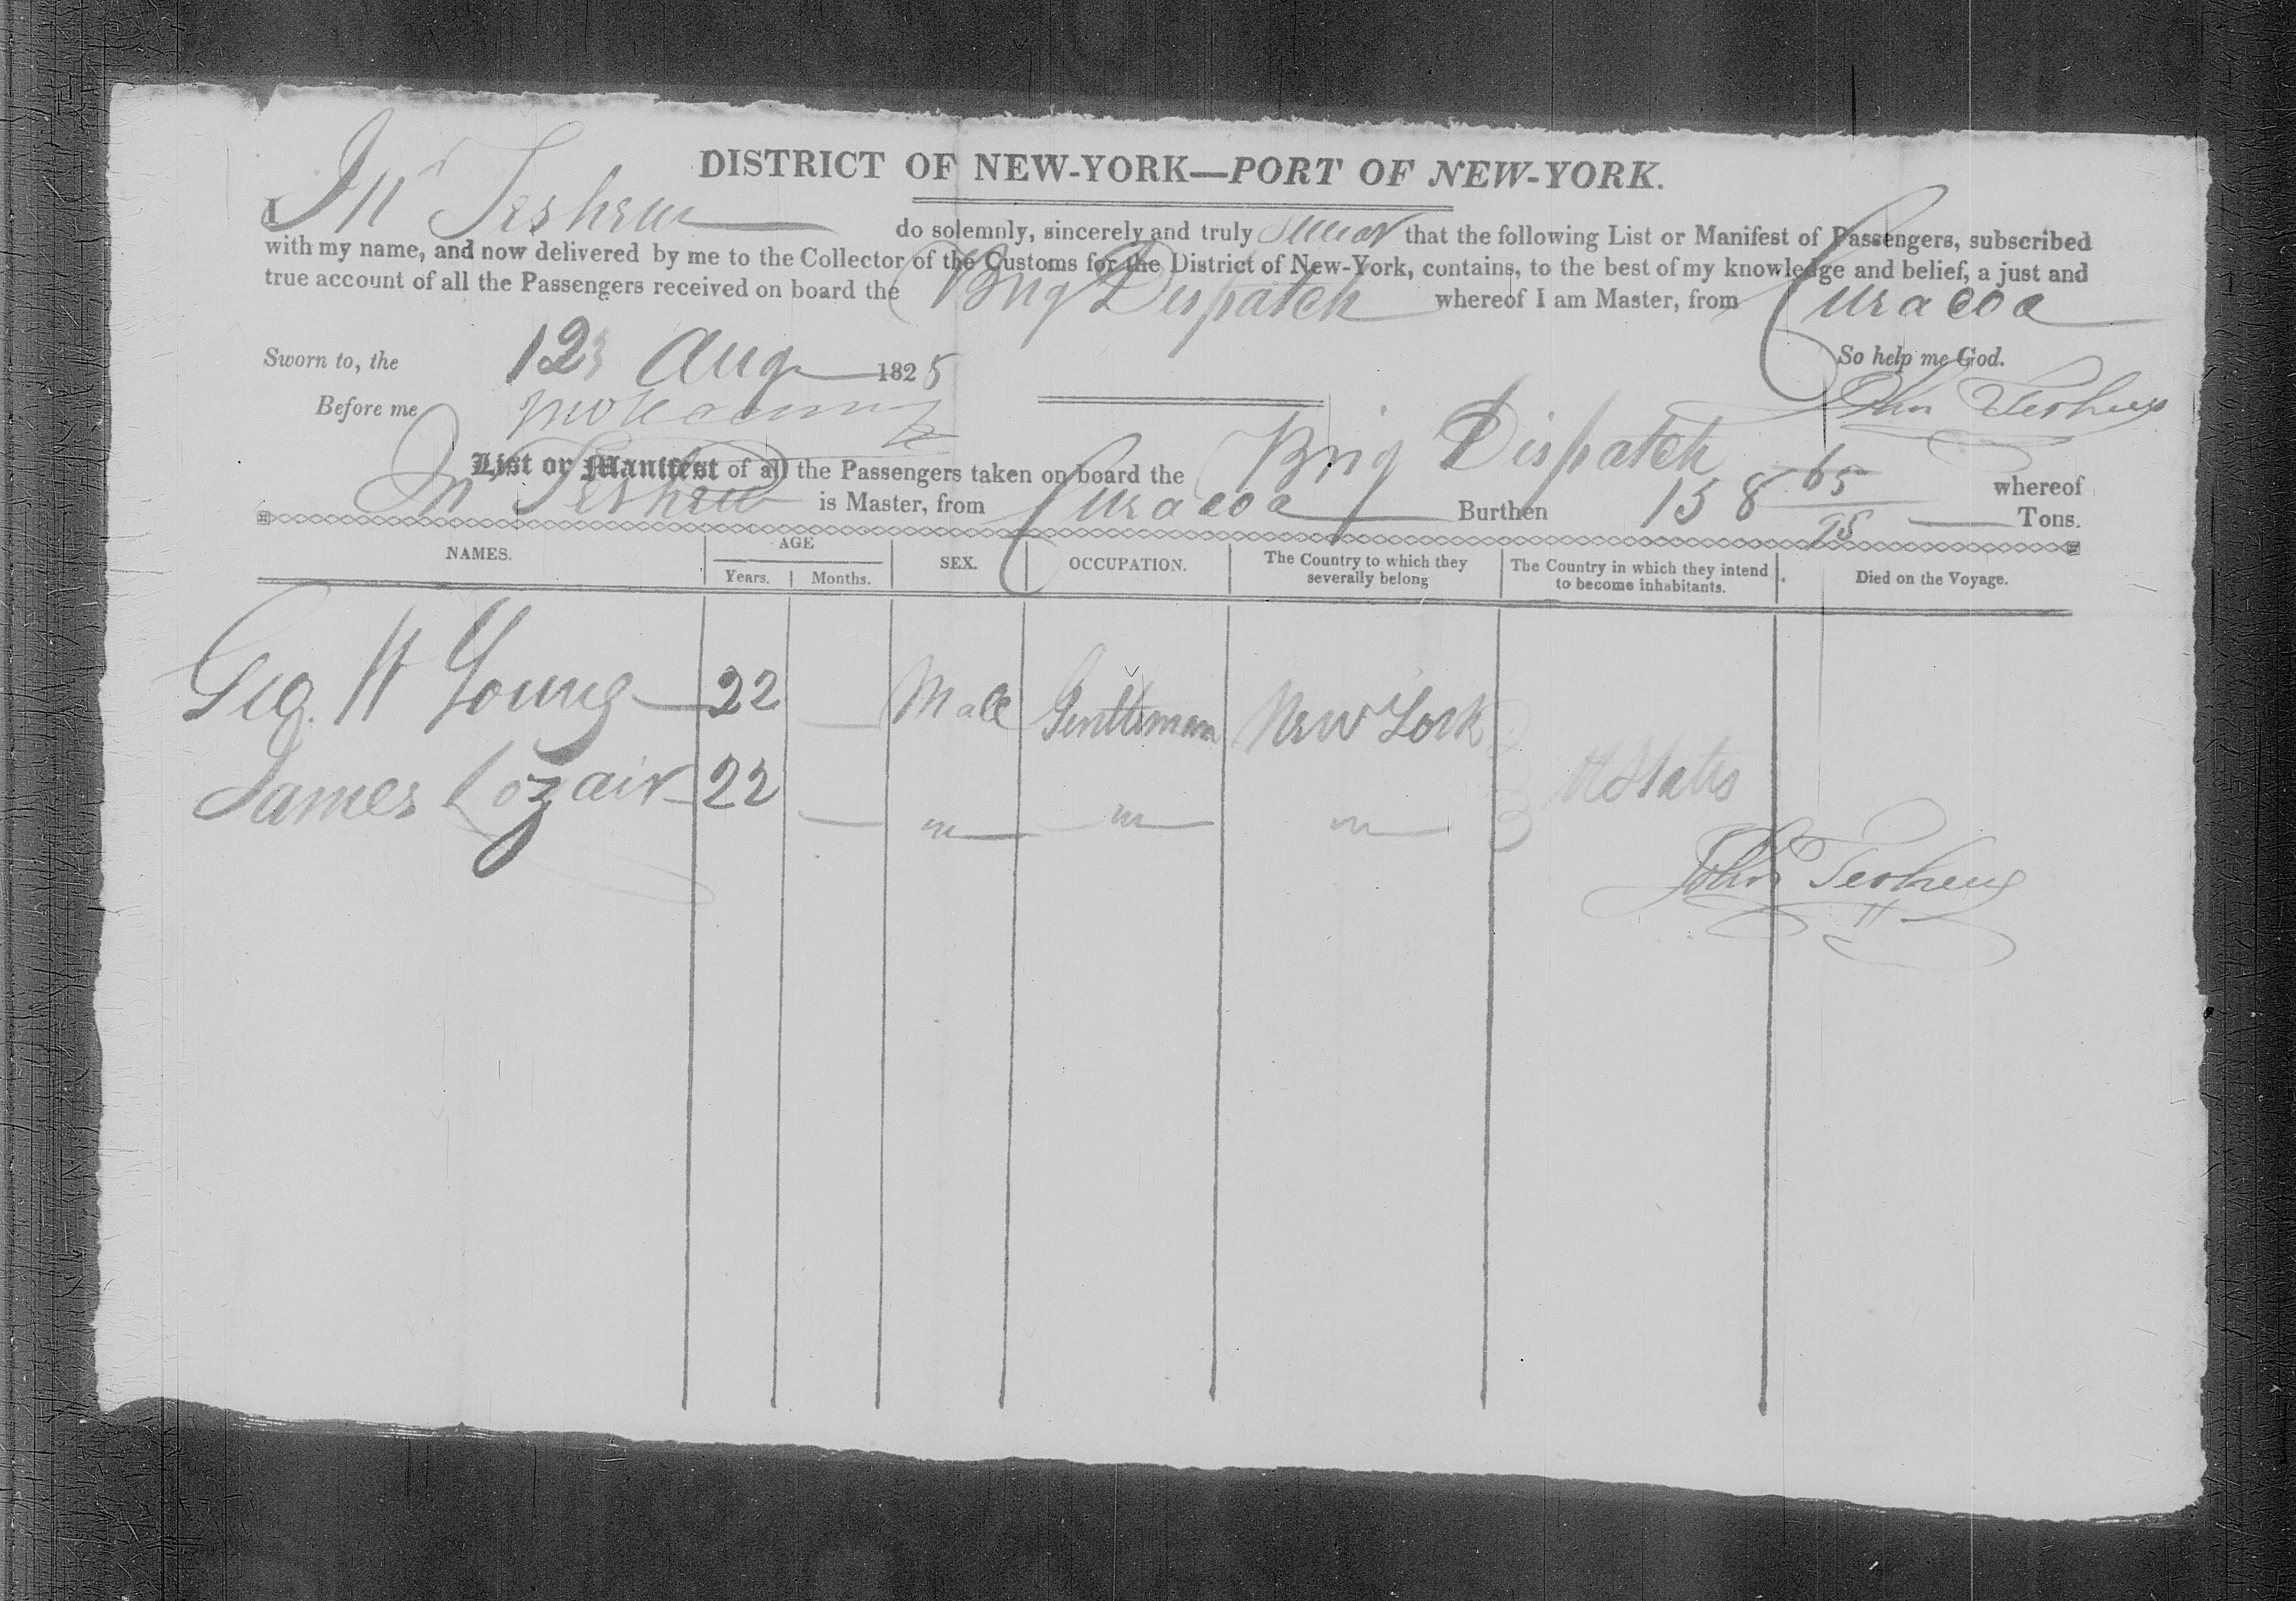 DISTRICT OF NEW-YORK—PORT OF NEW-YORK.
I Jn Terhew do solemnly, sincerely and truly swear that the following List or Manifest of Passengers, subscribed
with my name, and now delivered by me to the Collector of the Customs for the District of New-York, contains, to the best of my knowledge and belief, a just and
true account of all the Passengers received on board the Brig Dispatch whereof I am Master, from Curacoa
Sworn to, the 12 Aug 1825 So help me God.
Before me John Terheus
List or Manifest of all the Passengers taken on board the Brig Dispatch whereof
Jn Terhew is Master, from Curacoa Burthen 158 65/95 Tons.
NAMES. AGE SEX. OCCUPATION. The Country to which they severally belong The Country in which they intend to become inhabitants. Died on the Voyage.
Years. Months.
Geo. W Young 22 — Male Gentleman New York
James Lozair 22 — " " " U States
John Terheus